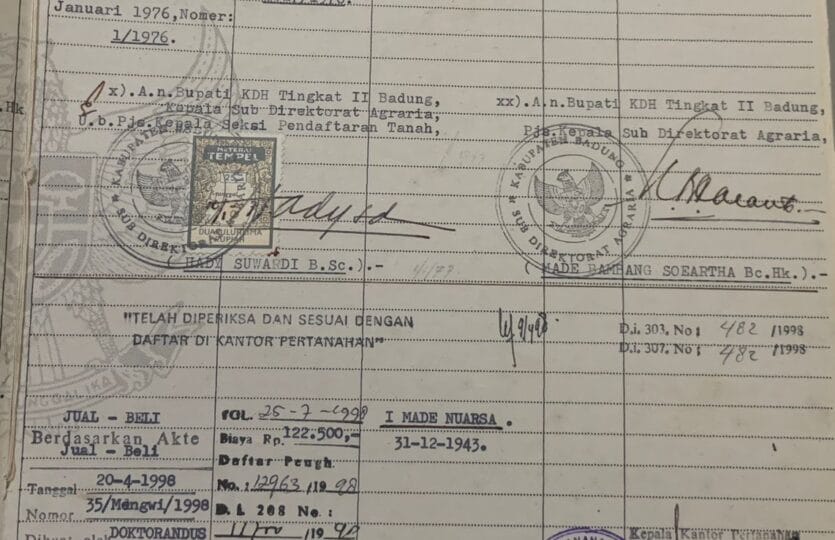 Januari 1976,Nomer:
1/1976.
x).A.n.Bupati KDH Tingkat II Badung,
Kepala Sub Direktorat Agraria,
U.b.Pjs.Kepala Seksi Pendaftaran Tanah,
xx).A.n.Bupati KDH Tingkat II Badung,
Pjs.Kepala Sub Direktorat Agraria,
KABUPATEN BADUNG
SUB DIREKTORAT AGRARIA
METERAI
TEMPEL
DUAPULUH LIMA
RUPIAH
KABUPATEN BADUNG
SUB DIREKTO
( HADY SUWARDI B.Sc.).-
( MADE BAMBANG SOEARTHA Bc.Hk.).-
"TELAH DIPERIKSA DAN SESUAI DENGAN
DAFTAR DI KANTOR PERTANAHAN"
D.i. 303. No : 482 /1998
D.i. 307. No : 482 /1998
JUAL - BELI
Berdasarkan Akte
Jual - Beli
Tanggal 20-4-1998
Nomor 35/Mengwi/1998
DOKTORANDUS
TGL. 25-7-1998
Biaya Rp. 122.500,-
Daftar Pengh.
No.: 12963/19 98
D.I. 208 No. :
/19 98
I MADE NUARSA .
31-12-1943.
Kepala Kantor Pertanahan